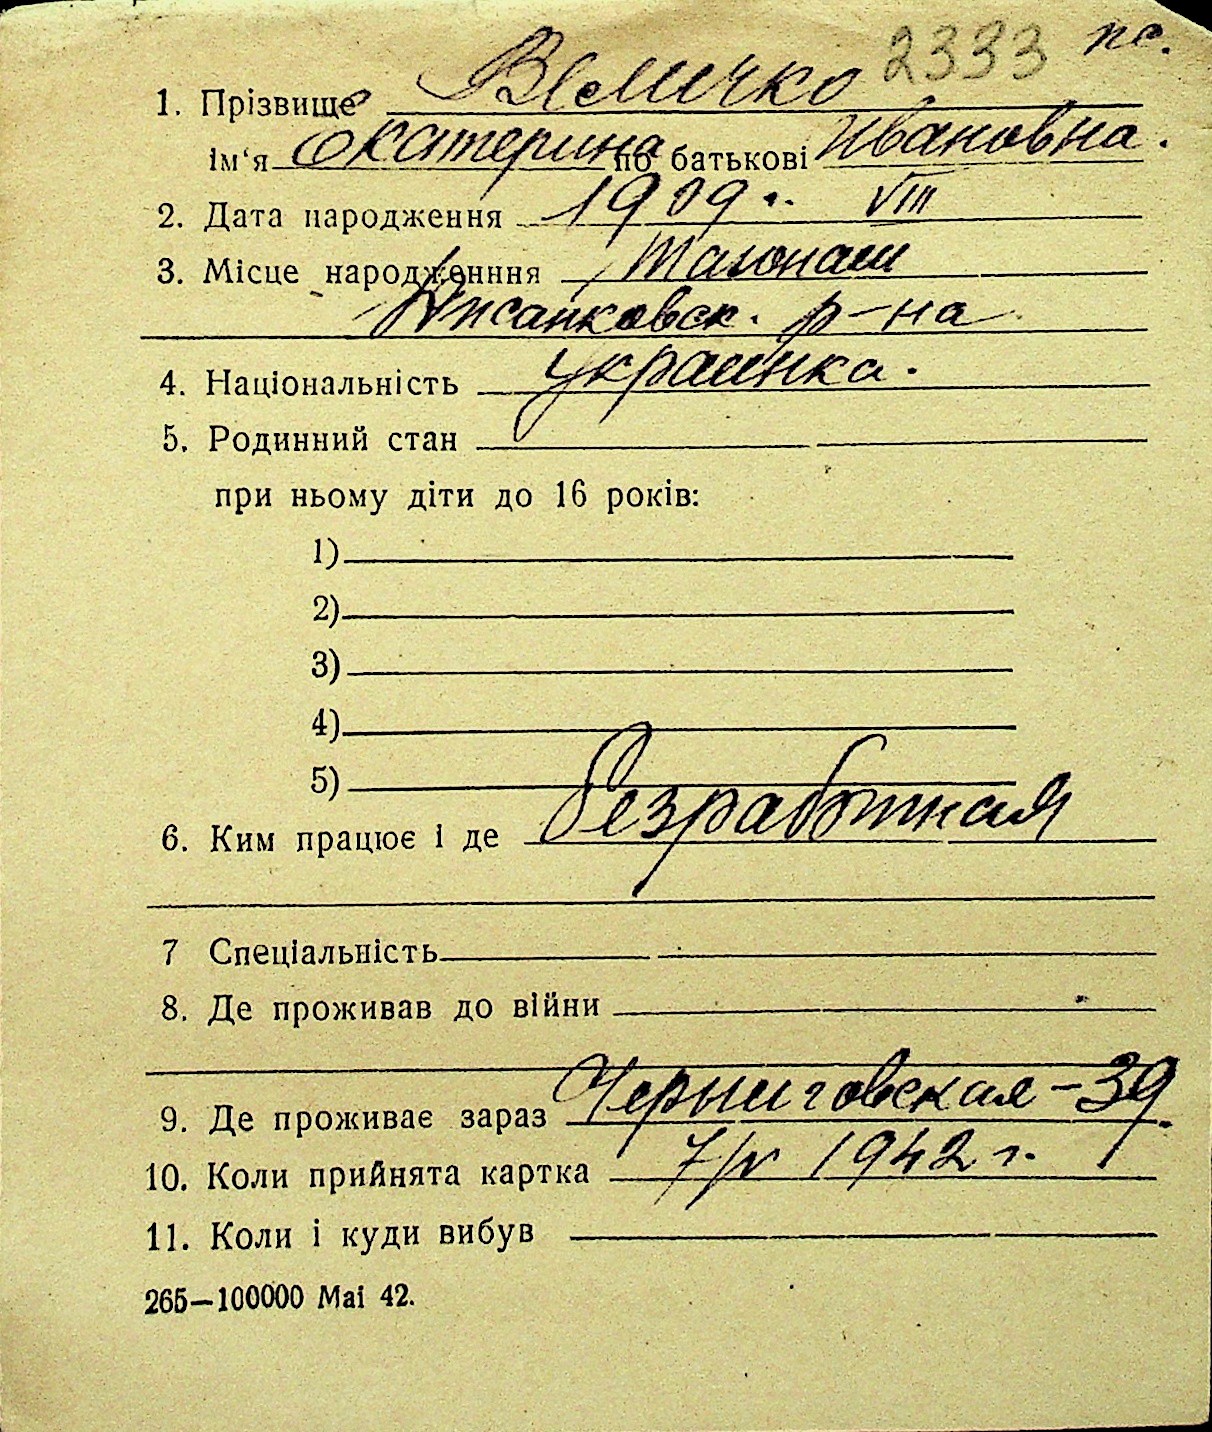 2333 пс.
1. Прізвище Величко
ім‘я Екатерина по батькові Ивановна.
2. Дата народження 1909 г. VIII
3. Місце народженння
р-на
4. Національність украинка.
5. Родинний стан
при ньому діти до 16 років:
1)
2)
3)
4)
5)
6. Ким працює і де безработная
7 Спеціальність
8. Де проживав до війни
9. Де проживає зараз Черниговская-39
10. Коли прийнята картка 1942 г.
11. Коли і куди вибув
265—100000 Маі 42.